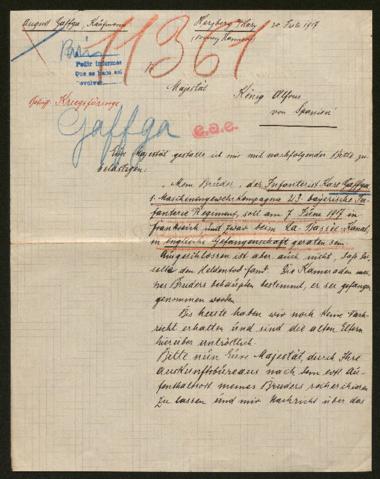 August Gaffga, Kaufmann
Herzberg Harz
20. Juli 1917
(Provinz Hannover)
11361
Pedir informes
Que se haga asi
evolver
An
Majestät
König Alfons
von Spanien
Kriegsgefangene
Gaffga
e.a.e.
Eure Majestät gestatte ich mir mit nachfolgender Bitte zu
belästigen:
"Mein Bruder, der Infanterist Karl Gaffga
1. Maschinengewehrkompagnie 23. bayerische In-
fanterie Regiment, soll am 7. Juni 1917 in
Frankreich und zwar beim La-Bassée-Kanal,
in englische Gefangenschaft geraten sein.
Ausgeschlossen ist aber auch nicht, daß
den Heldentod fand. Die Kameraden mei-
nes Bruders behaupten bestimmt, er sei gefangen
genommen worden.
Bis heute haben wir noch keine Nach-
richt erhalten und sind die alten Eltern
hierüber untröstlich.
Bitte nun Eure Majestät, durch Ihre
Auskunftsbüreaus nach dem evtl Au-
fenthaltsort meines Bruders recherchieren
zu lassen und mir Nachricht über das